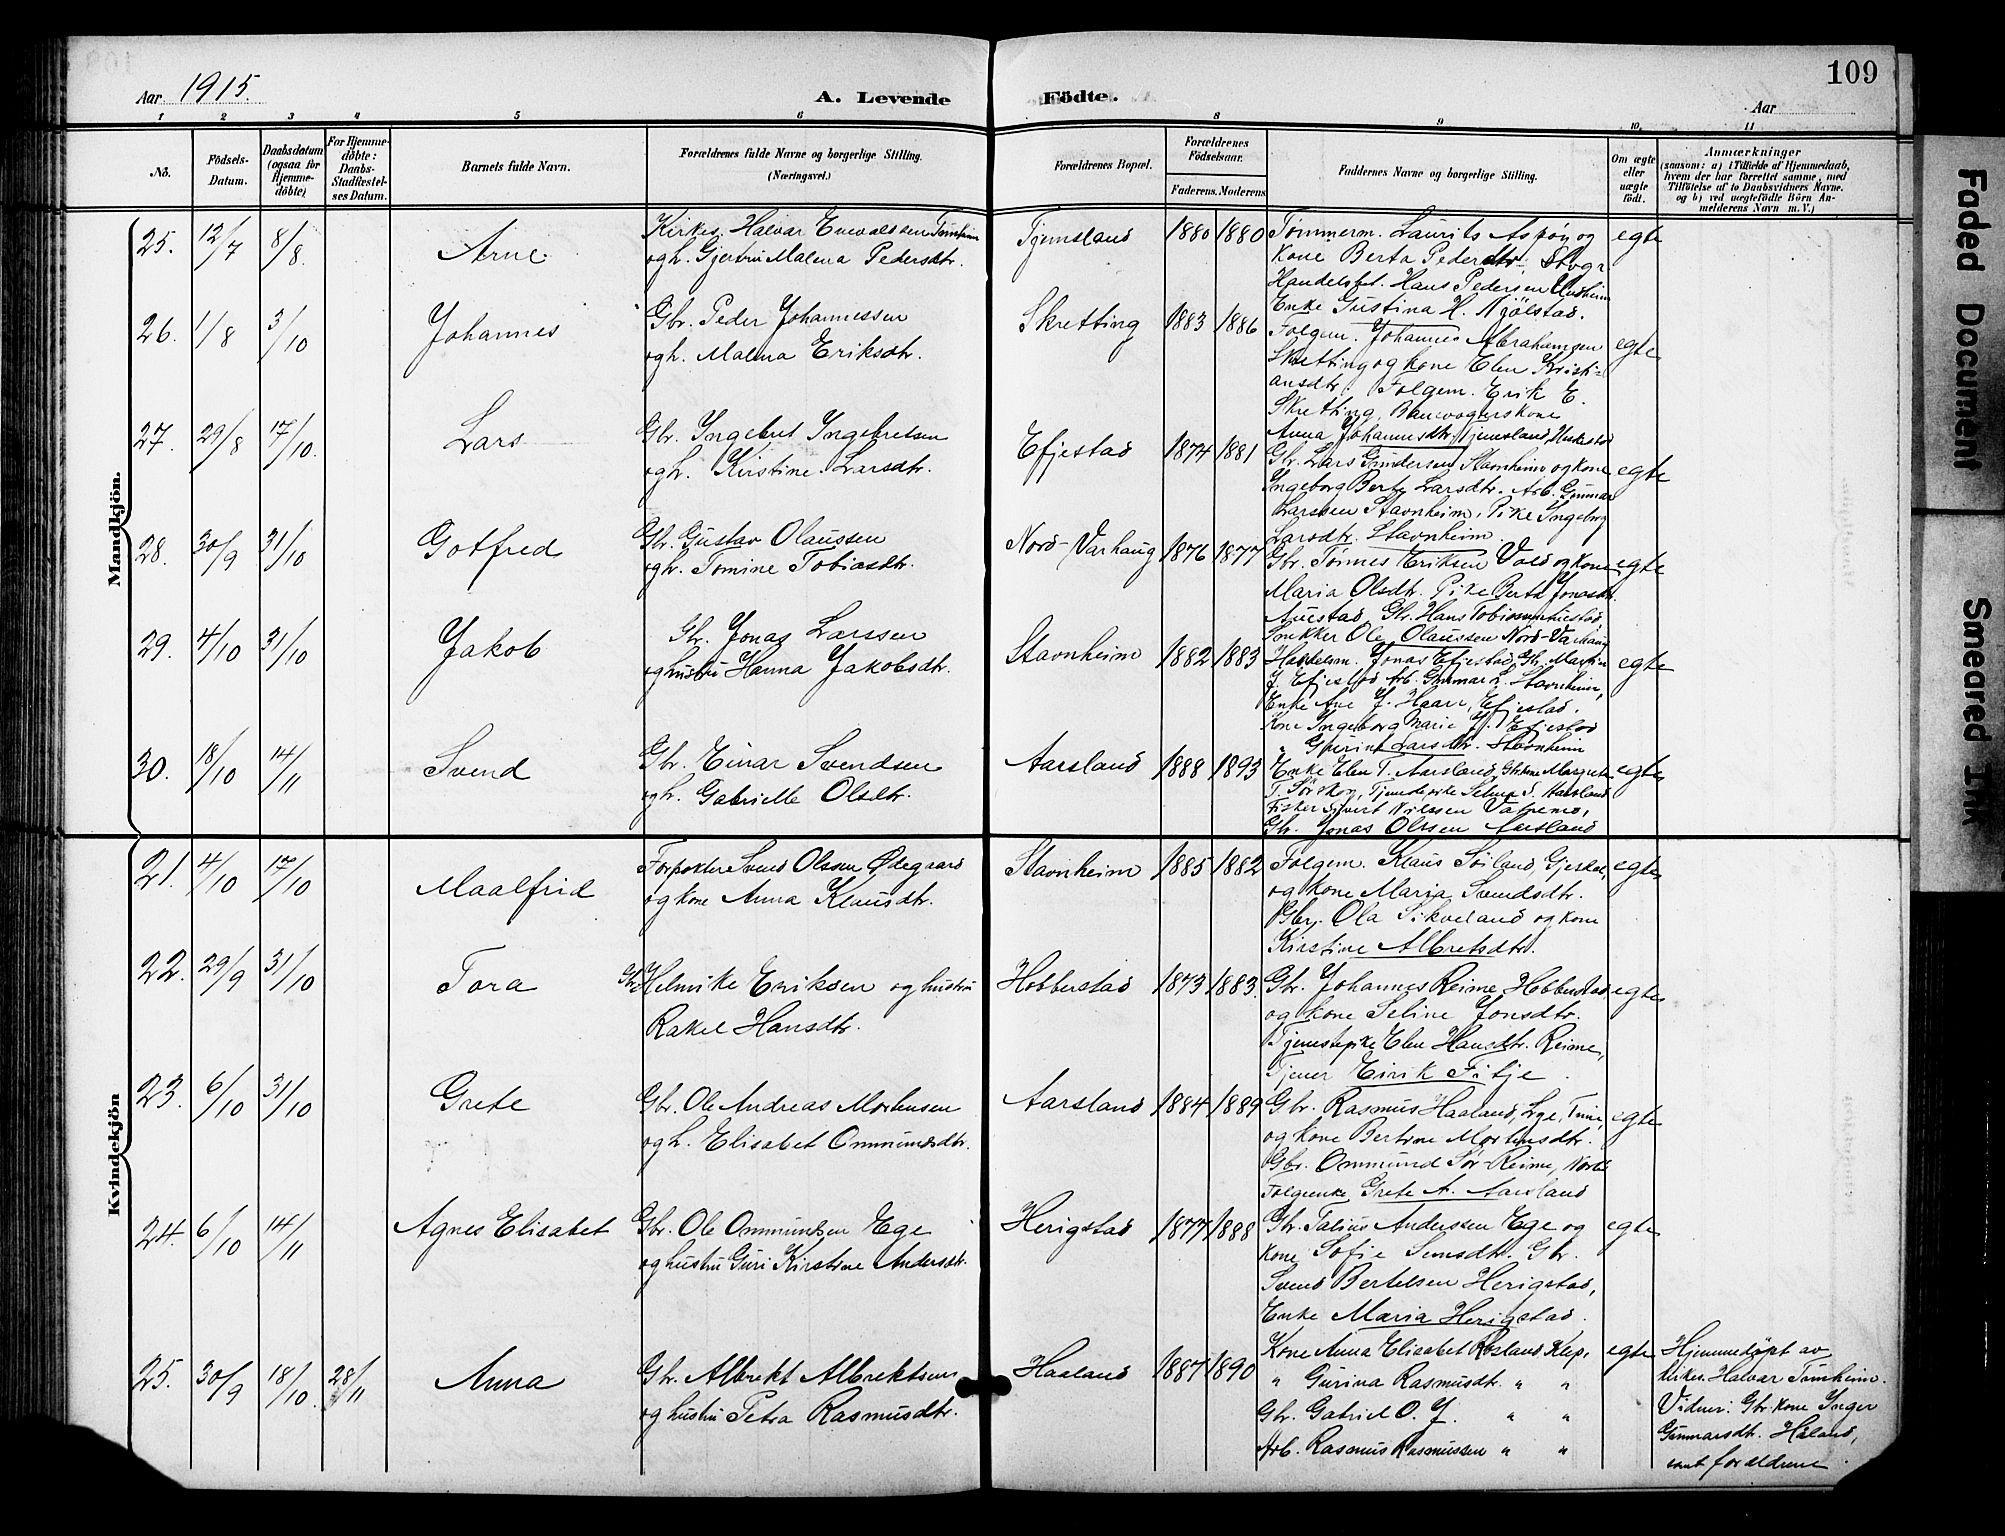 109
Aar 1915.
A. Levende Födte.
Aar
1 2 3 4 5 6 8 9 10 11
No.
Födsels-Datum.
Daabsdatum (ogsaa for Hjemme-döbte)
For Hjemme-döbte: Daabs-Stadfæstel-ses Datum.
Barnets fulde Navn.
Forældrenes fulde Navne og borgerlige Stilling. (Næringsvei.)
Forældrenes Bopæl.
Forældrenes Födselsaar.
Faderens. Moderens
Faddernes Navne og borgerlige Stilling.
Om ægte eller uægte födt.
Anmærkninger
(saasom: a) i Tilfælde af Hjemmedaab,
hvem der har forrettet samme, med
Tilföielse af to Daabsvidners Navne.
og b) ved uægtefödte Börn An-
melderens Navn m. V.)
Mandkjön.
25. 12/7 8/8 Arne
Kirkes. Halvar Enevaldsen Tømheim
og h. Gjertru Malena Pedersdtr.
Tjemsland 1880 1880
Tømmerm. Laurits Aspøy og
Kone Berta Pedersdtr.
Handelsbet. Hans Pedersen
Enke Gustina H. Njølstad.
egte
26. 1/8 3/10 Johannes
Gbr. Peder Johannessen
og h. Malena Eriksdtr.
Skretting 1883 1886
Folgem. Johannes Abrahamsen
Skretting og kone Elen Kristi-
ansdtr. Folgem. Erik E.
Skretting, Banevogterskone
Anna Johannesdtr. Tjemsland
egte
27. 29/8 17/10. Lars
Gbr. Ingebret Ingebretsen
og h. Kirstine Larsdtr.
Efjestad 1874 1881
Gbr. Lars Gundersen Stavnheim og kone
Ingeborg Berta Larsdtr. Arb. Gunnar
Larssen Stavnheim, Pike Ingeborg
Larsdtr. Stavnheim.
egte
28. 30/9 31/10 Gotfred
Gbr. Gustav Olaussen
og h. Tomine Tobiasdtr.
Nord-Varhaug 1876 1877
Gbr. Tønnes Eriksen Vold og kone
Maria Olsdtr. Pike Berta Jonasdtr.
Auestad, Gbr. Hans Tobiassen Auestad,
Snekker Ole Olaussen Nord-Varhaug
egte
29. 4/10 31/10 Jakob
Gbr. Jonas Larssen
og hustru Hanna Jakobsdtr.
Stavnheim 1882 1883
Handelsm. Jonas Efjestad, Gbr. Martin
J. Efjestad Arb. Gunnar L. Stavnheim,
Enke Ane J. Haarr, Efjestad.
Kone Ingeborg Marie J. Efjestad
" Gurine Larsdtr. Stavnheim
egte
30. 18/10 14/11 Svend
Gbr. Einar Svendsen
og h. Gabrielle Olsdtr.
Aarsland 1888 1893
Enke Elen T. Aarsland, Gbr.kone Margreta
T. Sørskog, Tjenestepike Selma S. Aarsland
Fisker Sivert Nilssen Vatnemo,
Gbr. Jonas Olssen Aarsland
egte
Kvindekjön
21. 4/10 17/10 Maalfrid
Forpakter Svend Olssen Ødegaard
og kone Anna Klausdtr.
Stavnheim 1885 1882
Folgem. Klaus Søiland, Gjesdal,
og kone Maria Svendsdtr.
Gbr. Ola Sikveland og kone
Kirstine Albretsdtr.
egte
22. 29/9 31/10 Tora
Gbr. Helmike Eriksen og hustru
Rakel Hansdtr.
Hobberstad 1873 1883.
Gbr. Johannes Reime Hobberstad
og kone Seline Jonsdtr.
Tjenestepike Elen Hansdtr. Reime,
Tjener Eirik Fitje.
egte
23. 6/10 31/10 Grete
Gbr. Ole Andreas Mortensen
og h. Elisabet Ommundsdtr.
Aarsland 1884 1889
Gbr. Rasmus Haaland, Lye, Time,
og kone Bertine Mortensdtr.
Gbr. Ommund Sør-Reime,
Folgeenke Grete A. Aarsland
egte
24. 6/10 14/11 Agnes Elisabet
Gbr. Ole Ommundsen Ege
og hustru Guri Kirstine Andersdtr.
Herigstad 1877 1888
Gbr. Talius Anderssen Ege og
kone Sofie Simsdtr. Gbr.
Svend Bertelsen Herigstad,
Enke Maria Herigstad.
egte
25. 30/9 18/10 28/11 Anna
Gbr. Albrekt Albrektsen
og hustru Petra Rasmusdtr.
Haaland 1887 1890
Kone Anna Elisabet Røsland Klep,
" Gurina Rasmusdtr. " "
Gbr. Gabriel O. J. " "
Arb. Rasmus Rasmussen " "
egte
Hjemmedøpt av
kirkes. Halvar Tømheim.
Vidner: Gbr.kone Inger
Gunnarsdtr. Håland,
samt forældrene.
Faded Document
Smeared Ink